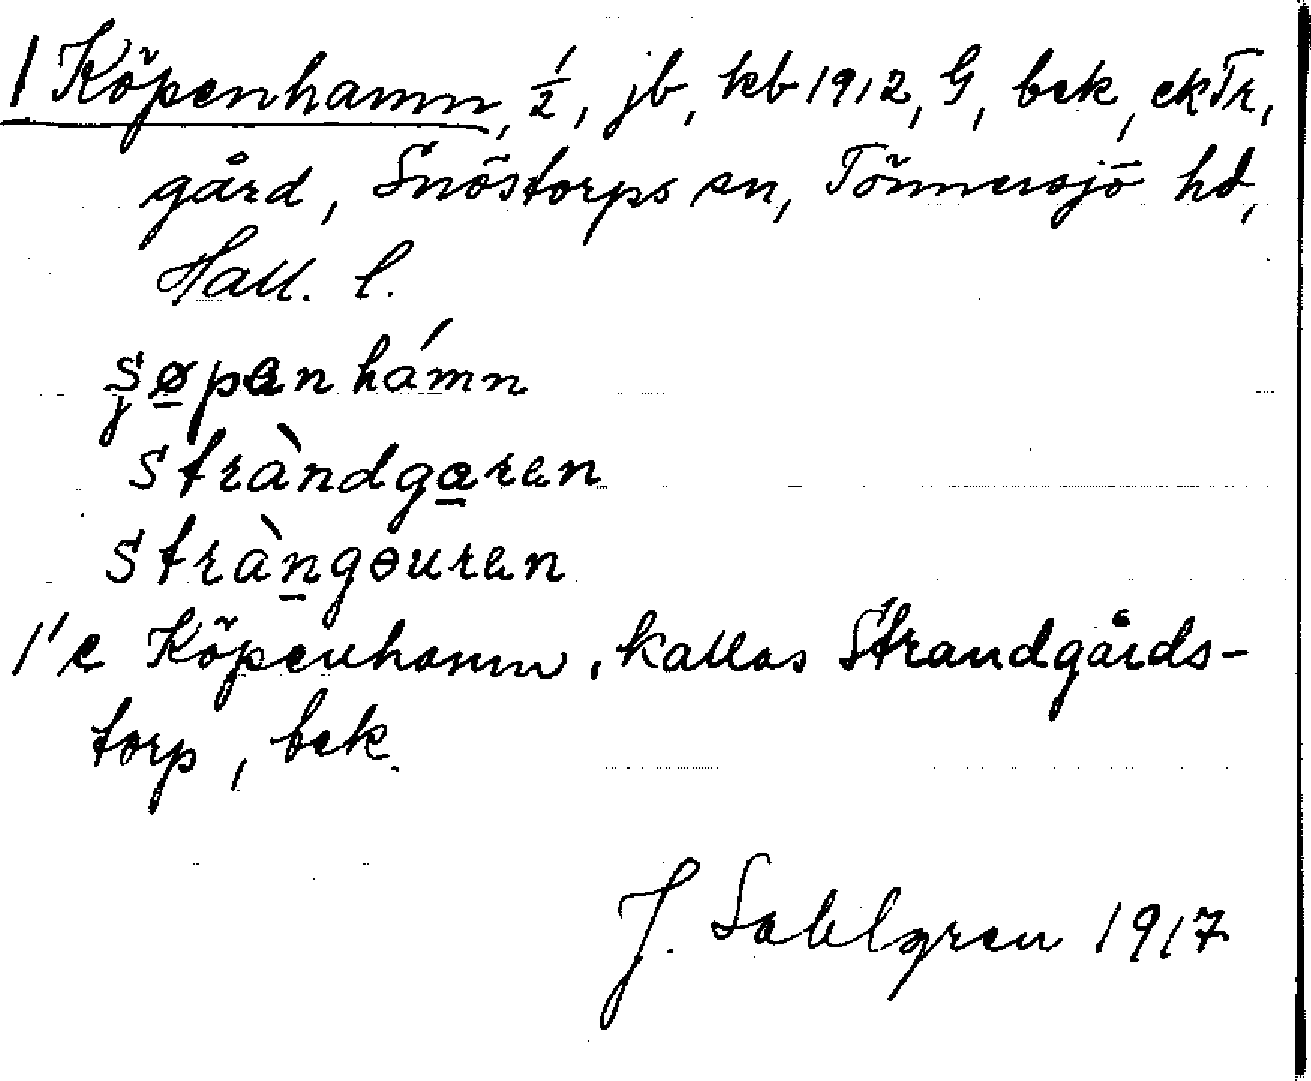 1 Köpenhamn, ½, jb, kb 1912, G, bek, ekTr,
gård, Snöstorps sn, Tönnersjö hd,
Hall. l.
şøpenhámn
stràndgaren
stràngouren
1'e Köpenhamn, kallas Strandgårds-
torp, bek.
J. Sahlgren 1917